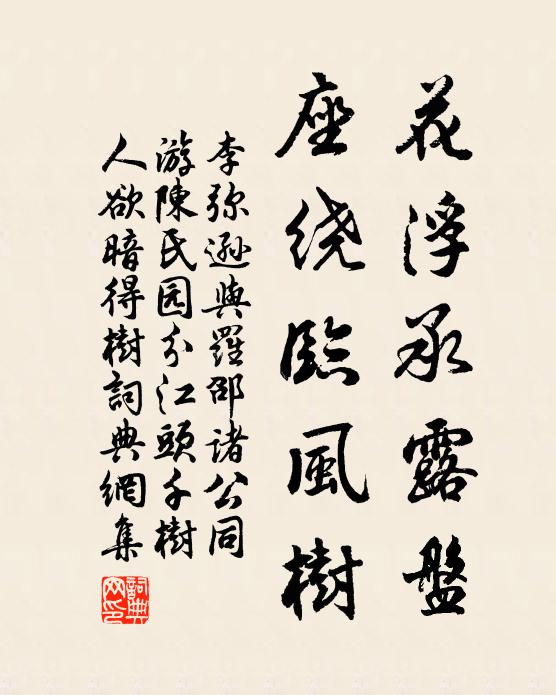 花浮承露盤
座绕臨風樹
李弥遜與羅邵诸公同
游陳氏园分江頭千樹
人欲暗得樹詞典網集
詞典
网印